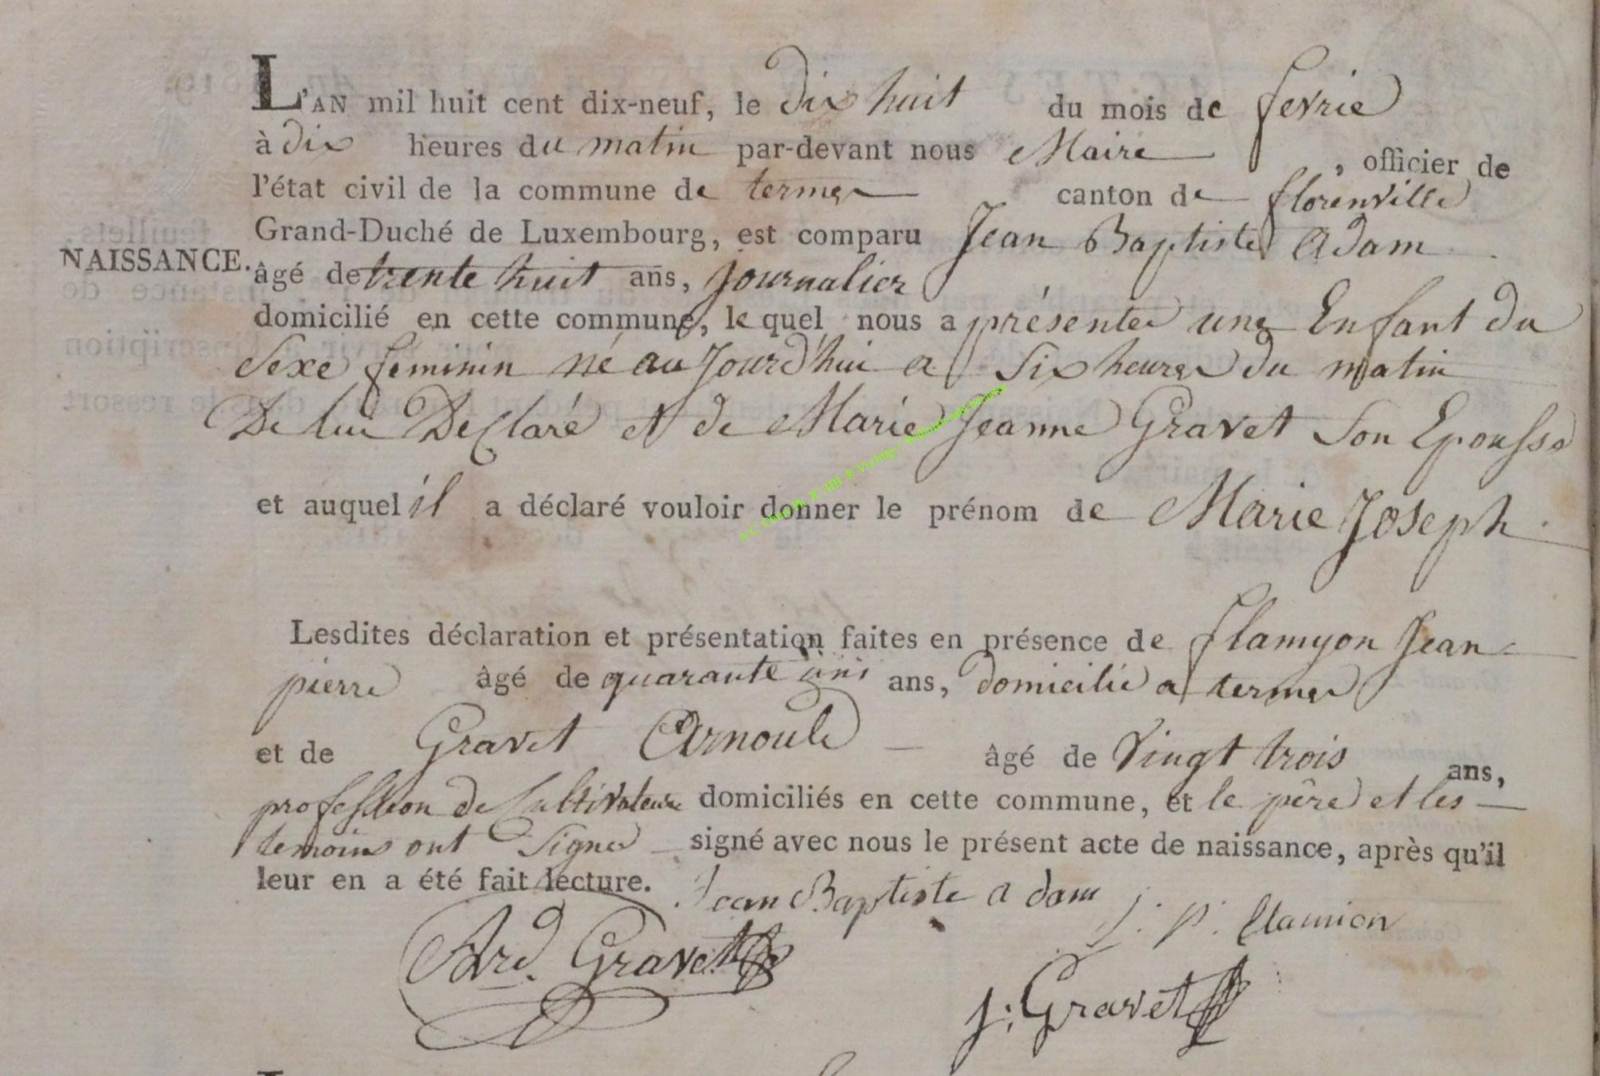 L'AN mil huit cent dix-neuf, le dix huit du mois de fevrie
à dix heures du matin par-devant nous Maire, officier de
l'état civil de la commune de termes canton de florenville
Grand-Duché de Luxembourg, est comparu Jean Baptiste Adam
NAISSANCE.
âgé de trente huit ans, Journalier
domicilié en cette commune, le quel nous a présenter une Enfant du
Sexe feminin né au Jourd'hui a Six heures du matin
De lui Declaré et de Marie Jeanne Gravet Son Epousse
et auquel il a déclaré vouloir donner le prénom de Marie Joseph.
Lesdites déclaration et présentation faites en présence de flamyon Jean
pierre âgé de quarante ans, domicilié a termes
et de Gravet Arnould âgé de Vingt trois ans,
profession de Cultivateur domiciliés en cette commune, et le père et les
temoins ont Signer signé avec nous le présent acte de naissance, après qu'il
leur en a été fait lecture.
Jean Baptiste adam
j. p. flamion
Ard. Gravet
j: Gravet